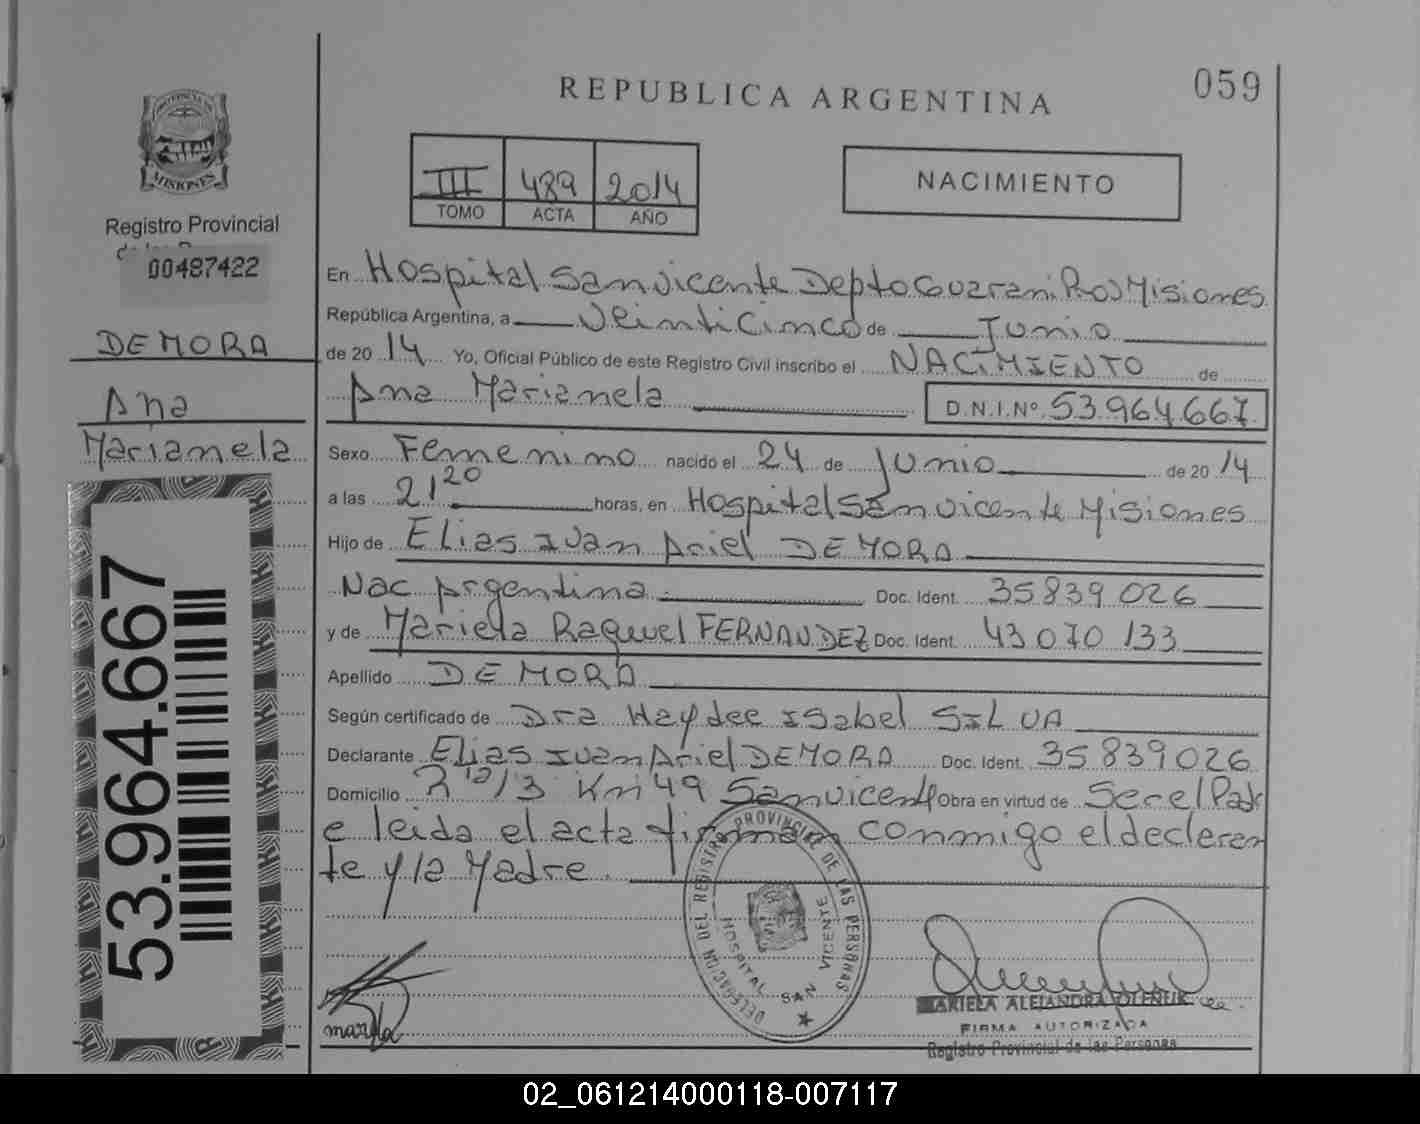 REPUBLICA ARGENTINA
059
PROVINCIA DE
MISIONES
Registro Provincial
00487422
III 489 2014
TOMO ACTA AÑO
NACIMIENTO
DE MORA
Ana
Marianela
53.964.667
En Hospital San Vicente Depto Guarani Misiones
República Argentina, a Veinticinco de Junio
de 2014 Yo, Oficial Público de este Registro Civil inscribo el NACIMIENTO de
Ana Marianela D.N.I.Nº 53.964.667
Sexo Femenino nacido el 24 de Junio de 2014
a las 21 20 horas, en Hospital San Vicente Misiones
Hijo de Elias Ivan Ariel DE MORA
Nac Argentina Doc. Ident. 35839026
y de Mariela Raquel FERNANDEZ Doc. Ident. 43 070 133
Apellido DE MORA
Según certificado de Dra Haydee Isabel SILVA
Declarante Elias Ivan Ariel DE MORA Doc. Ident. 35839026
Domicilio Km 49 San Vicente Obra en virtud de Ser el Padr
e leida el acta firman conmigo el declaran
te y la Madre.
DELEGACION DEL REGISTRO PROVINCIAL DE LAS PERSONAS
HOSPITAL SAN VICENTE
MARIELA ALEJANDRA OLENIUK
FIRMA AUTORIZADA
Registro Provincial de las Personas
02_061214000118-007117